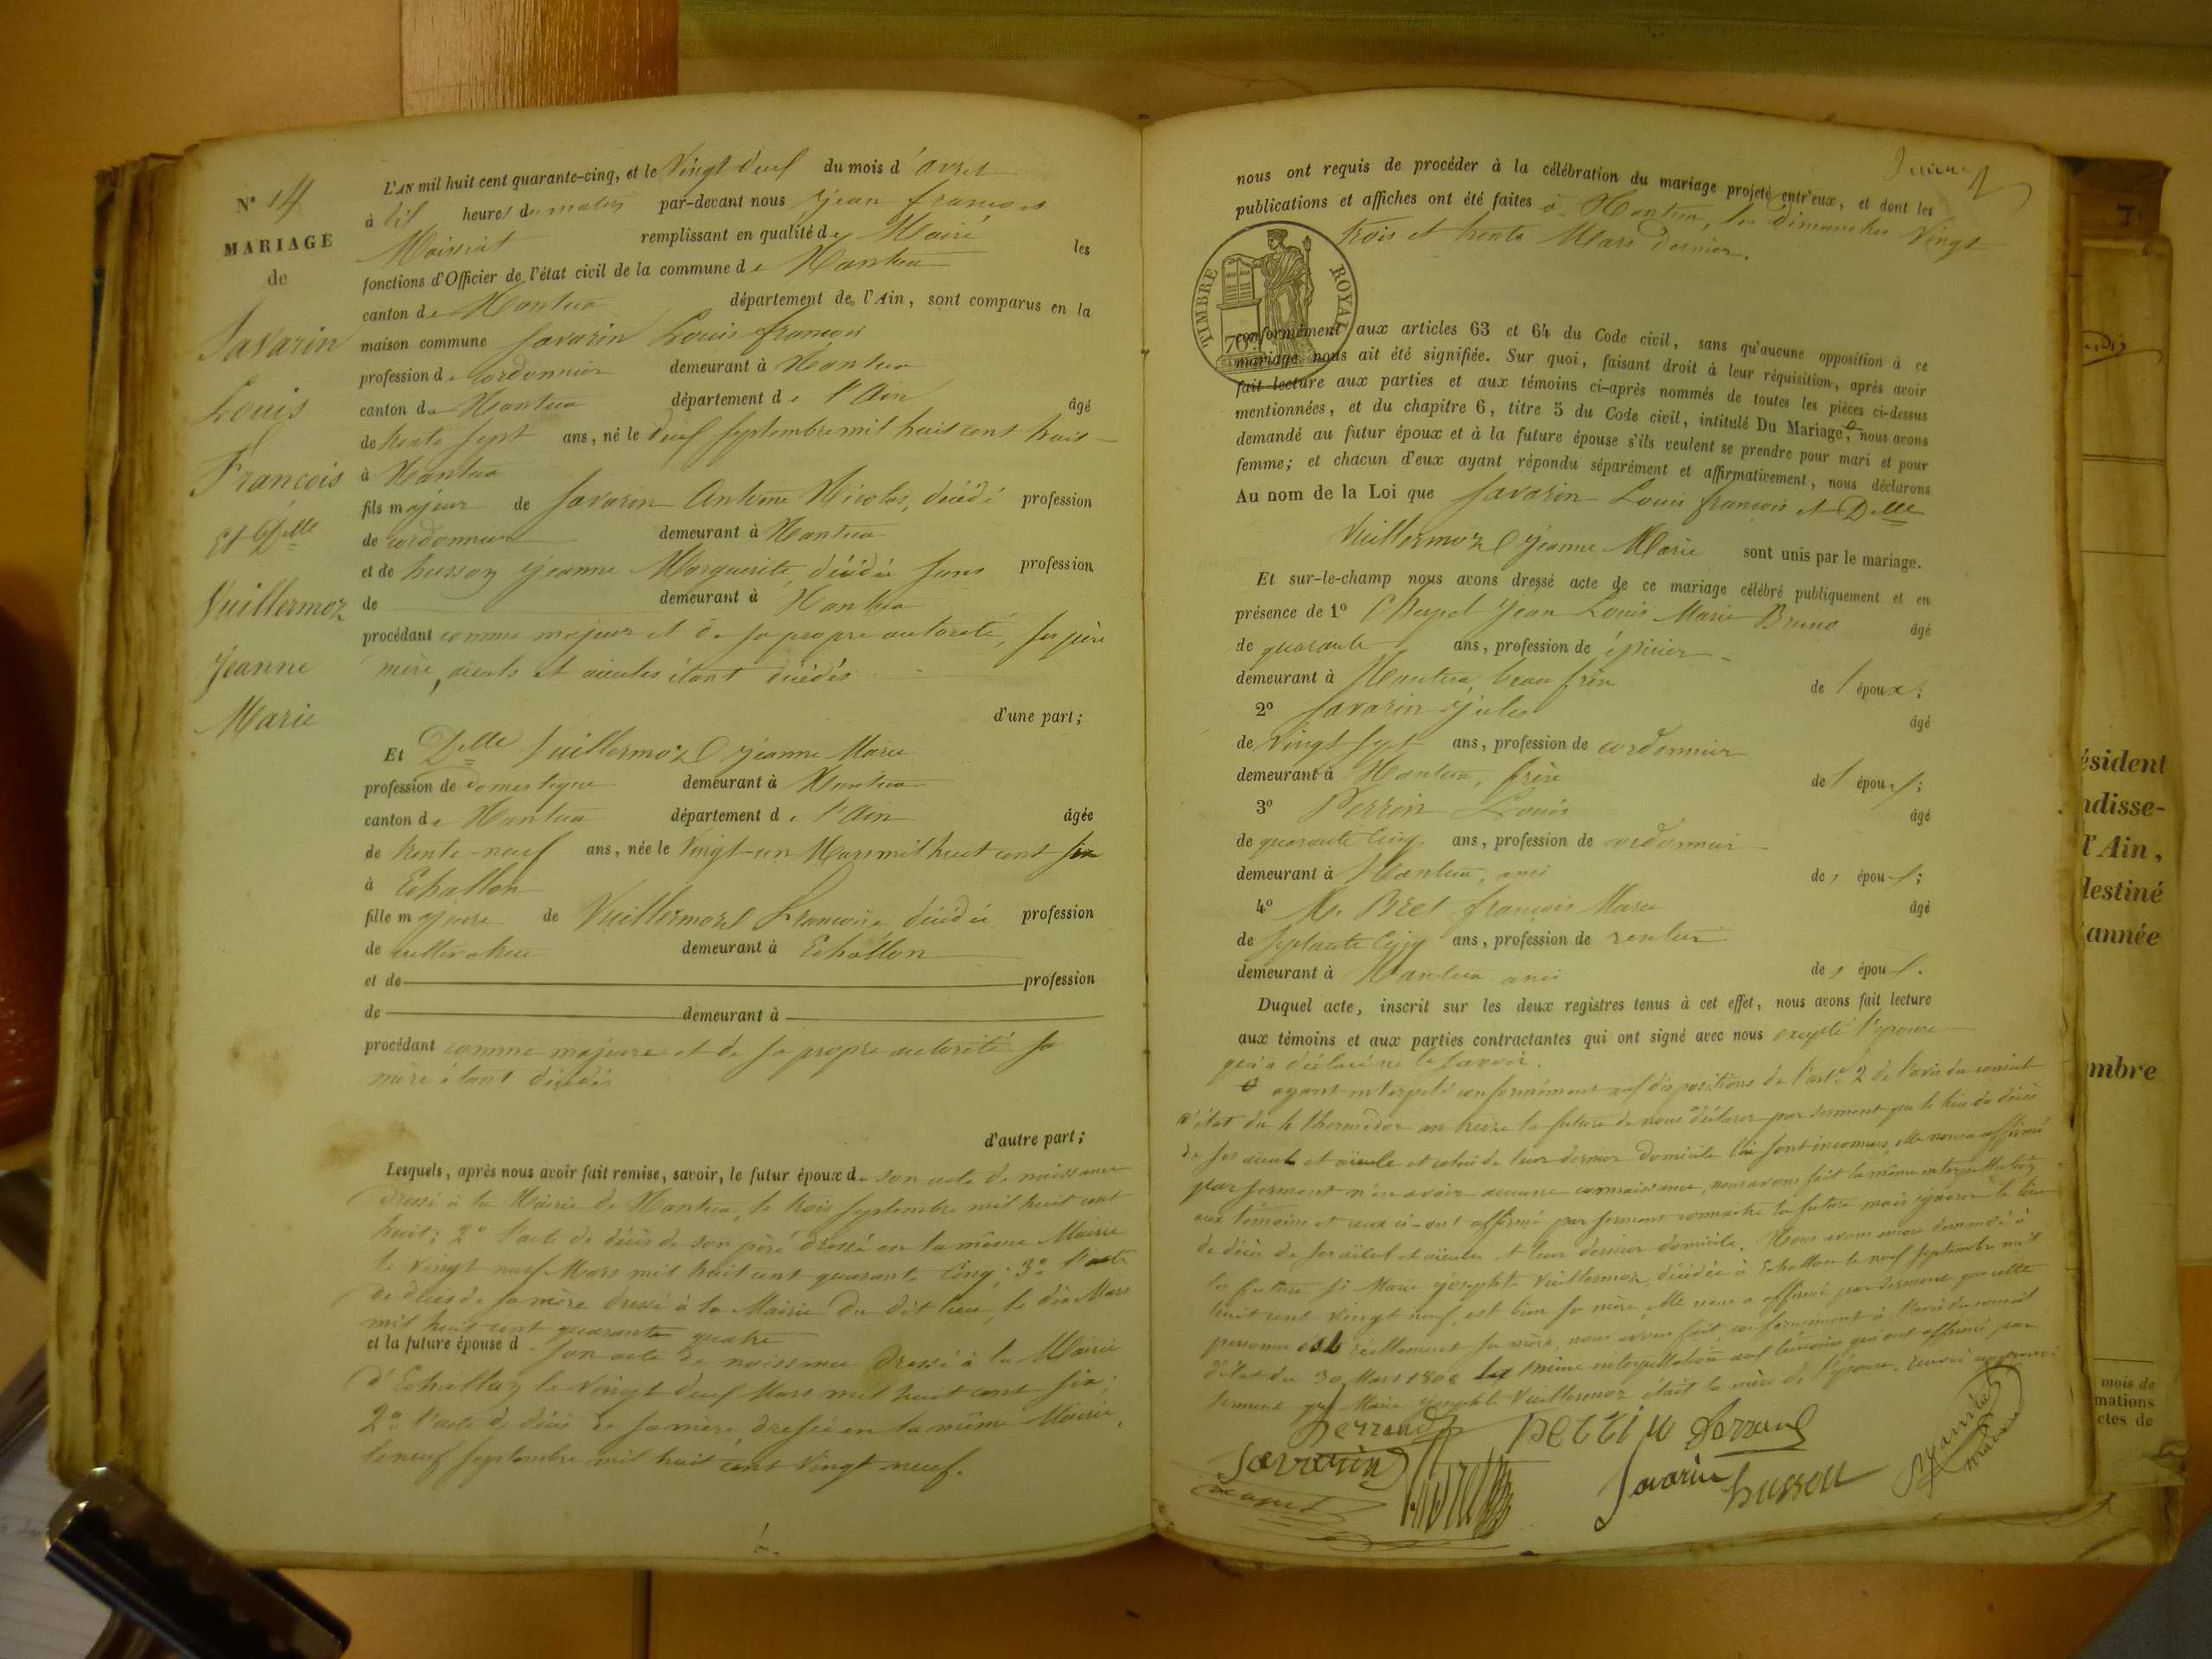 N° 14
MARIAGE
de
Savarin
Louis
François
et Delle
Vuillermoz
Jeanne
Marie
L'AN mil huit cent quarante-cinq, et le Vingt deux du mois d'avril
à dix heures du matin par-devant nous Jean François
Moissiat remplissant en qualité de Maire les
fonctions d'Officier de l'état civil de la commune de Nantua
canton de Nantua département de l'Ain, sont comparus en la
maison commune Savarin Louis françois
profession de cordonnier demeurant à Nantua
canton de Nantua département de l'Ain âgé
de trente sept ans, né le deux Septembre mil huit cent huit
à Nantua
fils majeur de Savarin Antoine Nicolas, décédé profession
de cordonnier demeurant à Nantua
et de husson Jeanne Marguerite, décédée sans profession
de demeurant à Nantua
procédant comme majeur et de sa propre autorité, ses père
mère, aïeuls et aïeules étant décédés
d'une part;
Et Delle Vuillermoz Jeanne Marie
profession de domestique demeurant à Nantua
canton de Nantua département de l'Ain âgée
de trente-neuf ans, née le Vingt-un Mars mil huit cent six
à Echallon
fille majeure de Vuillermoz décédée profession
de cultivatrice demeurant à Echallon
et de profession
de demeurant à
procédant comme majeure et de sa propre autorité sa
mère étant décédée
d'autre part;
Lesquels, après nous avoir fait remise, savoir, le futur époux de son acte de naissance
dressé à la Mairie de Nantua, le trois Septembre mil huit cent
huit; 2° l'acte de décès de son père dressé en la même Mairie
le vingt neuf Mars mil huit cent quarante cinq; 3° l'acte
de décès de sa mère dressé à la Mairie du dit lieu, le dix Mars
mil huit cent quarante quatre
et la future épouse d son acte de naissance dressé à la Mairie
d'Echallon le Vingt deux Mars mil huit cent six;
2° l'acte de décès de sa mère, dressé en la même Mairie,
le neuf Septembre mil huit cent vingt neuf.
nous ont requis de procéder à la célébration du mariage projeté entr'eux, et dont les
publications et affiches ont été faites à Nantua, les Dimanches Vingt
trois et trente Mars dernier.
TIMBRE ROYAL
70
conformément aux articles 63 et 64 du Code civil, sans qu'aucune opposition à ce
mariage nous ait été signifiée. Sur quoi, faisant droit à leur réquisition, après avoir
fait lecture aux parties et aux témoins ci-après nommés de toutes les pièces ci-dessus
mentionnées, et du chapitre 6, titre 5 du Code civil, intitulé Du Mariage, nous avons
demandé au futur époux et à la future épouse s'ils veulent se prendre pour mari et pour
femme; et chacun d'eux ayant répondu séparément et affirmativement, nous déclarons
Au nom de la Loi que Savarin Louis françois et Delle
Vuillermoz Jeanne Marie sont unis par le mariage.
Et sur-le-champ nous avons dressé acte de ce mariage célébré publiquement et en
présence de 1° Jean Louis Marie Bruno âgé
de quarante ans, profession de épicier
demeurant à Nantua, beau frère de l'époux;
2° Savarin Jules âgé
de Vingt sept ans, profession de cordonnier
demeurant à Nantua, frère de l'époux;
3° Perrin Louis âgé
de quarante cinq ans, profession de cordonnier
demeurant à Nantua, ami des époux;
4° Mr. Bret françois Marie âgé
de septante cinq ans, profession de rentier
demeurant à Nantua ami des époux.
Duquel acte, inscrit sur les deux registres tenus à cet effet, nous avons fait lecture
aux témoins et aux parties contractantes qui ont signé avec nous excepté l'épouse
qui a déclaré ne le savoir.
ayant interpellé conformément aux dispositions de l'art. 2 de l'avis du conseil
d'état du 4 thermidor an treize la future de nous déclarer par serment que le lieu du décès
de ses aïeul et aïeule et celui de leur dernier domicile lui sont inconnus, elle nous a affirmé
par serment n'en avoir aucune connaissance, nous avons fait la même interpellation
aux témoins et ceux ci ont affirmé par serment connaître la future mais ignorer le lieu
de décès de ses aïeul et aïeule et leur dernier domicile. Nous avons encore demandé à
la future si Marie Josephte Vuillermoz, décédée à Echallon le neuf Septembre mil
huit cent vingt neuf, est bien sa mère, elle nous a affirmé par serment que cette
personne est réellement sa mère, nous avons fait, conformément à l'avis du conseil
d'état du 30 Mars 1808 la même interpellation aux témoins qui ont affirmé par
serment que Marie Josephte Vuillermoz était la mère de l'épouse. Renvoi approuvé
perrin
Savarin
Savarin husson
maire
ésident
ndisse-
l'Ain,
destiné
année
mbre
mois de
mations
ctes de